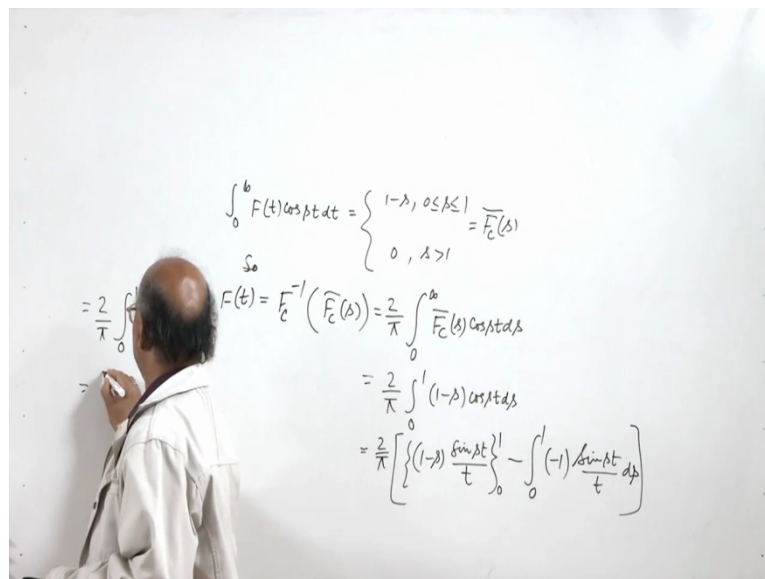 ∫₀^∞ F(t) cos st dt = { 1-s, 0≤s≤1
0, s>1 } = F̄c(s)
So
F(t) = Fc⁻¹(F̄c(s)) = 2/π ∫₀^∞ F̄c(s) cos st ds
= 2/π ∫₀¹ (1-s) cos st ds
= 2/π [ {(1-s) sin st / t}₀¹ - ∫₀¹ (-1) sin st / t ds ]
= 2/π ∫₀
=